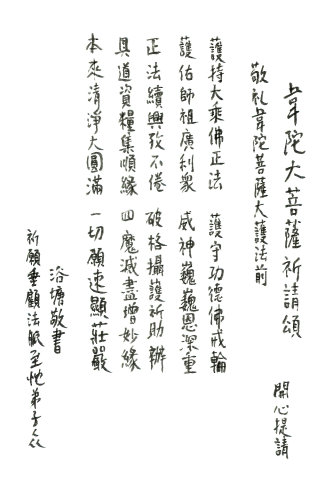 韋陀大菩薩祈請頌
開心提請
敬礼韋陀菩薩大護法前
護持大乘佛正法 護守功德佛戒輪
護佑師祖廣利衆 威神巍巍恩深重
正法續興孜不倦 破格攝護祈助辦
具道資糧集順緣 四魔滅盡增妙緣
本來清淨大圓滿 一切願速顯莊嚴
浴塘敬書
祈願垂顧法脈至忱弟子